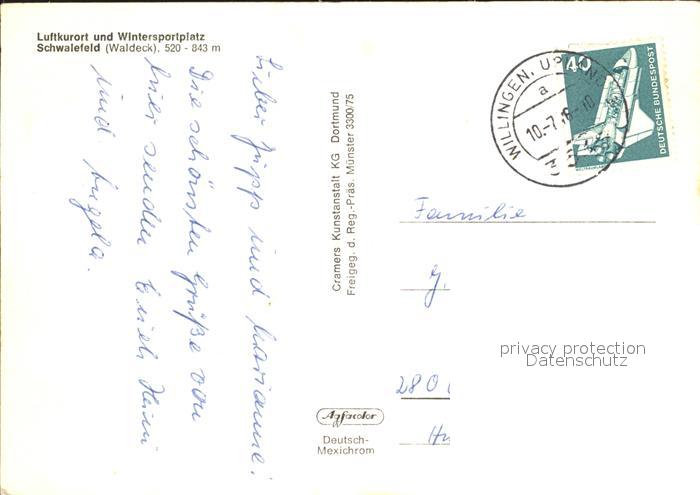 Luftkurort und Wintersportplatz
Schwalefeld (Waldeck), 520 - 843 m
Lieber Jupp und Marianne!
Die schönsten Grüße von
hier senden Euch Heini
und Angela.
Cramers Kunstanstalt KG Dortmund
Freigeg. d. Reg.-Präs. Münster 3300/75
WILLINGEN, UPLAND
a
10.-7.76-10
40
DEUTSCHE BUNDESPOST
Familie
J.
280
privacy protection
Datenschutz
Agfacolor
Deutsch-
Mexichrom